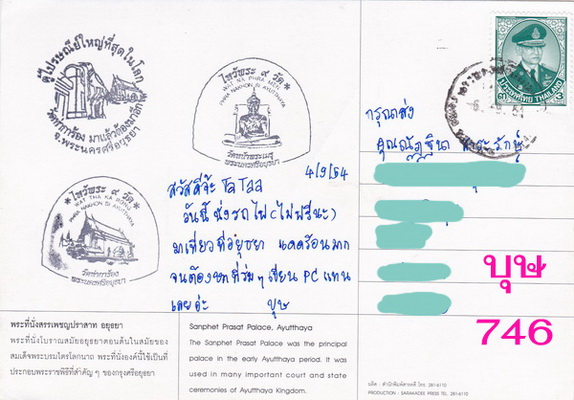 ตู้ไปรษณีย์ใหญ่ที่สุดในโลก
วัดท่าการ้อง มาแล้วต้องมาอีก
จ.พระนครศรีอยุธยา
ไหว้พระ ๙ วัด
WAT NA PHRA MERU
PHRA NAKHON SI AYUTTHAYA
วัดหน้าพระเมรุ
พระนครศรีอยุธยา
ไหว้พระ ๙ วัด
WAT THA KA RONG
PHRA NAKHON SI AYUTTHAYA
วัดท่าการ้อง
พระนครศรีอยุธยา
4/9/54
สวัสดีจ้ะ TaTaa
วันนี้นั่งรถไฟ (ไม่ฟรีนะ)
มาเที่ยวที่อยุธยา แดดร้อนมาก
จนต้องหาที่ร่มๆ เขียน PC แทน
เลยอ่ะ บุษ
พระที่นั่งสรรเพชญปราสาท อยุธยา
พระที่นั่งโบราณสมัยอยุธยาตอนต้นในสมัยของ
สมเด็จพระบรมไตรโลกนาถ พระที่นั่งองค์นี้ใช้เป็นที่
ประกอบพระราชพิธีที่สำคัญ ๆ ของกรุงศรีอยุธยา
Sanphet Prasat Palace, Ayutthaya
The Sanphet Prasat Palace was the principal
palace in the early Ayutthaya period. It was
used in many important court and state
ceremonies of Ayutthaya Kingdom.
10
ประเทศไทย THAILAND
กรุณาส่ง
บุษ
746
ผลิต : สำนักพิมพ์สารคดี โทร. 281-6110
PRODUCTION : SARAKADEE PRESS TEL. 281-6110